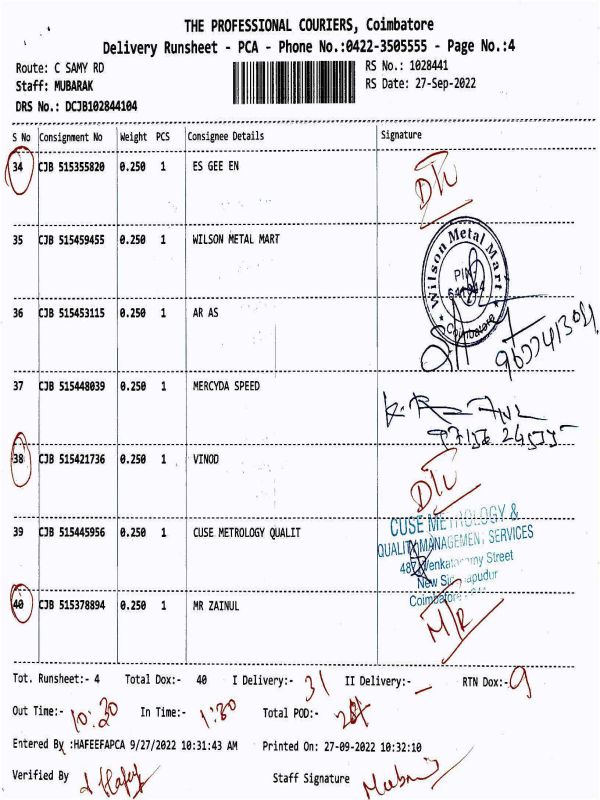 THE PROFESSIONAL COURIERS, Coimbatore
Delivery Runsheet - PCA - Phone No.:0422-3505555 - Page No.:4
Route: C SAMY RD
RS No.: 1028441
Staff: MUBARAK
RS Date: 27-Sep-2022
DRS No.: DCJB102844104
S No Consignment No Weight PCS Consignee Details Signature
34 CJB 515355820 0.250 1 ES GEE EN
35 CJB 515459455 0.250 1 WILSON METAL MART
Wilson Metal Mart
PIN
Coimbatore
36 CJB 515453115 0.250 1 AR AS
37 CJB 515448039 0.250 1 MERCYDA SPEED
38 CJB 515421736 0.250 1 VINOD
39 CJB 515445956 0.250 1 CUSE METROLOGY QUALIT
CUSE METROLOGY &
QUALITY MANAGEMENT SERVICES
Street
New
Coimbatore
40 CJB 515378894 0.250 1 MR ZAINUL
M/R
Tot. Runsheet:- 4 Total Dox:- 40 I Delivery:- 31 II Delivery:- - RTN Dox:- 9
Out Time:- 10:30 In Time:- 1:30 Total POD:-
Entered By :HAFEEFAPCA 9/27/2022 10:31:43 AM Printed On: 27-09-2022 10:32:10
Verified By Staff Signature